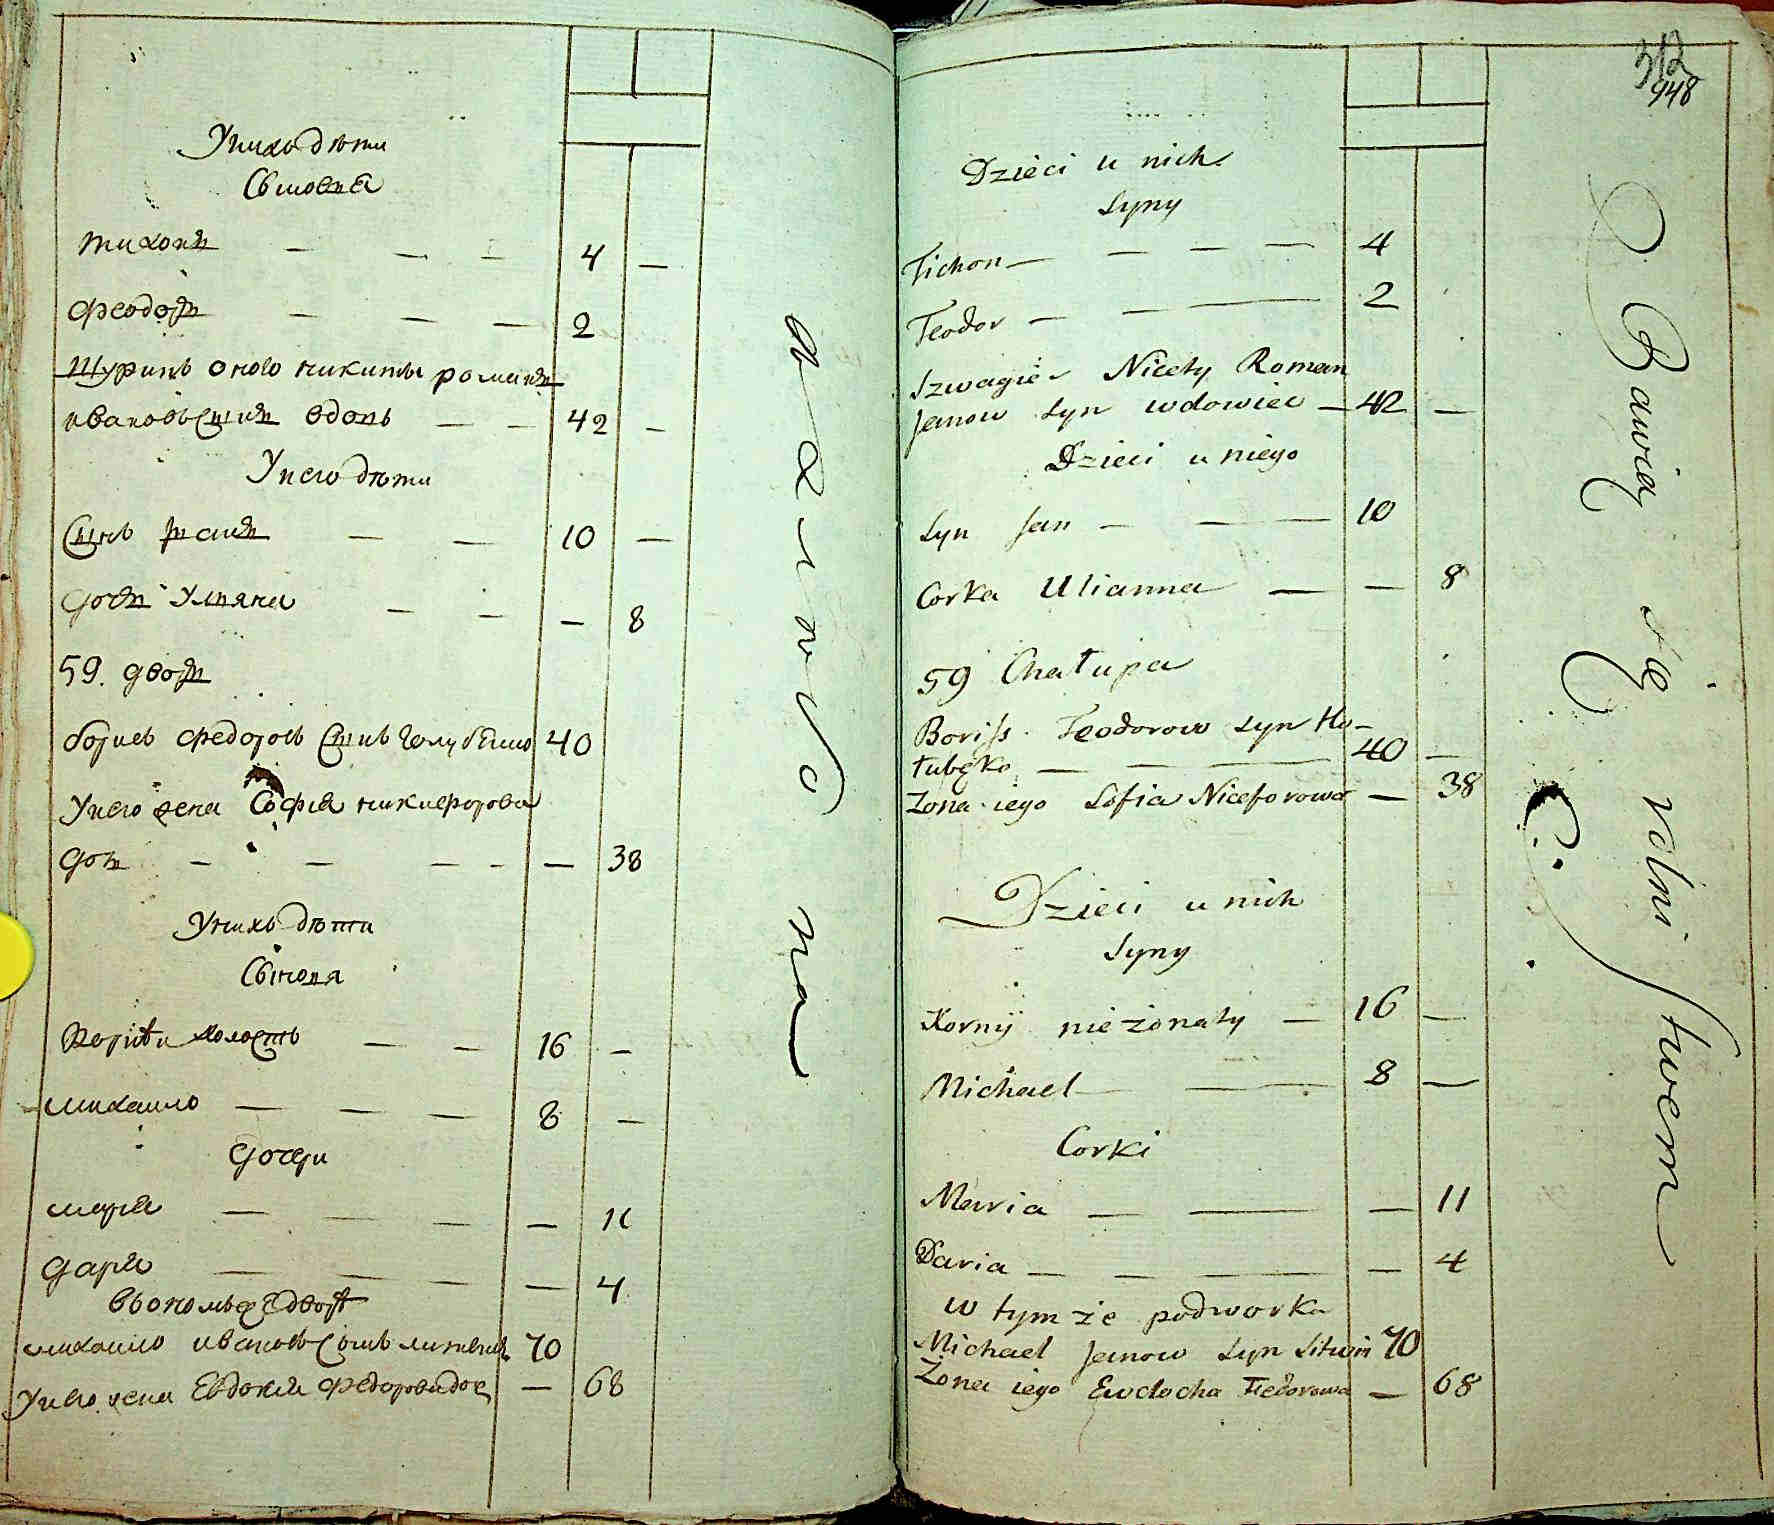 У нихъ дѣти
Сыновя
Тихонъ — — — 4 —
Феодоръ — — — 2
Шуринъ оного никиты романъ
ивановъ Сынъ вдовъ — — 42 —
У него дѣти
Сынъ — — 10 —
дочь Уляна — — — 8
59. дворъ
борисъ федоровъ Сынъ голубенко 40
У него жена София никифорова
доч — — — — — 38
У нихъ дѣти
Сыновя
Корнѣи холостъ — — 16 —
михаило — — — 8 —
дочери
мария — — — — — 11
дария — — — — — 4
в томъ же дворѣ
михаило ивановъ Сынъ литвинъ 70
У него жена Евдокия федорова доч — 68
на
312
948
Dzieci u nich
Syny
Tichon — — — — 4
Teodor — — 2
Szwagier Nicety Roman
Janow Syn wdowiec — 42 —
Dzieci u niego
Syn Jan — — — 10
Corka Ulianna — — 8
59 Chałupa
Boriss Teodorow Syn Ho-
łubęko — — — 40 —
Zona iego Sofia Niceforowa — 38
Dzieci u nich
Syny
Kornij nieżonaty — 16 —
Michael — — 8 —
Corki
Maria — — — 11
Daria — — — — 4
w tym że podworku
Michael Janow Syn Litwin 70
Żona iego Ewdocha Fiedorowa — 68
Bawią się rolni